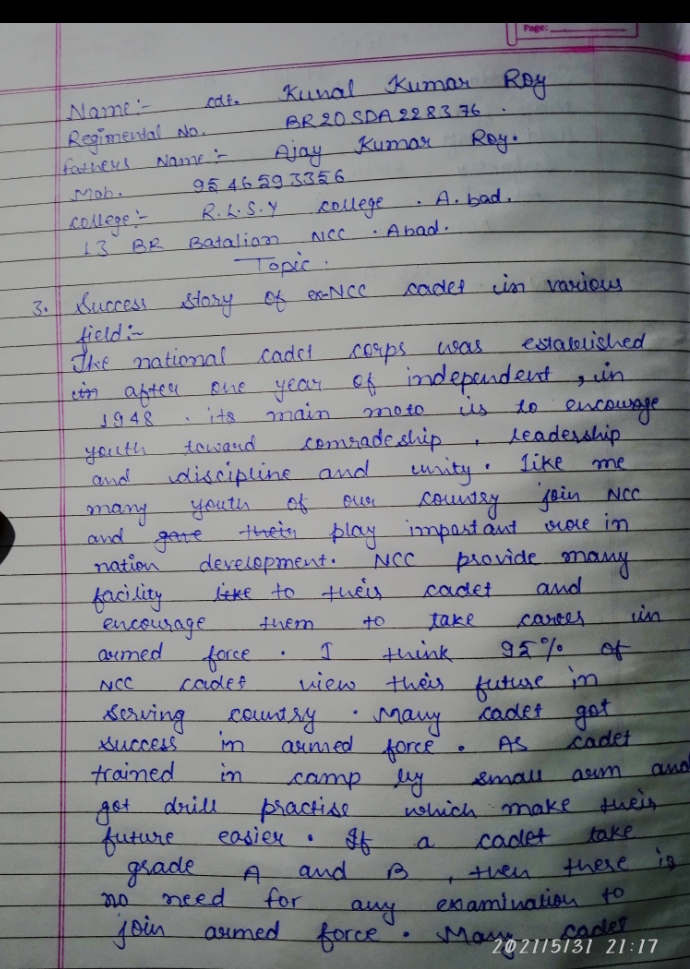 Page:
Name:- cdt. Kunal Kumar Roy
Regimental No. BR20SDA228376.
Fathers Name:- Ajay Kumar Roy.
Mob. 9546593356
College:- R.L.S.Y college. A.bad.
13 BR Batalian NCC. Abad.
Topic.
3. Success story of ex-NCC cadet in various
field:-
The national cadet corps was established
in after one year of independent, in
1948. its main moto is to encourage
youth toward comradeship, leadership
and discipline and unity. Like me
many youth of our country join NCC
and gave their play important role in
nation development. NCC provide many
facility like to their cadet and
encourage them to take career in
armed force. I think 95% of
NCC cadet view their future in
serving country. Many cadet got
success in armed force. As cadet
trained in camp by small arm and
got drill practise which make their
future easier. If a cadet take
grade A and B, then there is
no need for any examination to
join armed force. Many cadet
2021/5/31 21:17